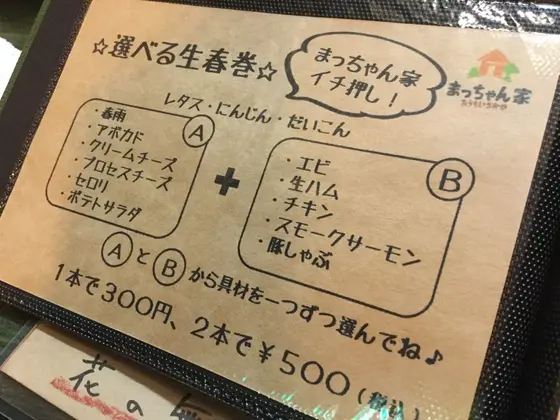 ☆選べる生春巻☆
まっちゃん家
イチ押し！
まっちゃん家
レタス・にんじん・だいこん
A
・春雨
・アボカド
・クリームチーズ
・プロセスチーズ
・セロリ
・ポテトサラダ
+
B
・エビ
・生ハム
・チキン
・スモークサーモン
・豚しゃぶ
AとBから具材を一つずつ選んでね♪
1本で300円、2本で￥500（税込）
花の